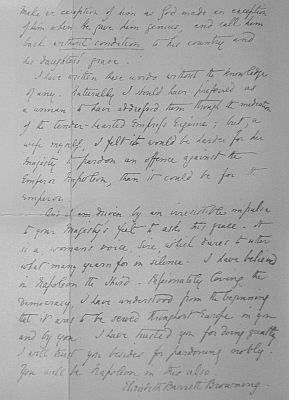 Make an exception of him as God made an exception
of him when he gave him genius, and call him
back without condition to his country and
his daughter's grave.
I have written these words without the knowledge
of any. Naturally I should have preferred as
a woman to have addressed them through the mediation
of the tender-hearted Empress Eugénie; but, a
wife myself, I felt it would be harder for her
Majesty to pardon an offence against the
Emperor Napoleon, than it could be for the
Emperor.
And I am driven by an irresistible impulse
to your Majesty's feet to ask this grace. It
is a woman's voice, Sire, which dares to utter
what many yearn for in silence. I have believed
in Napoleon the Third. Passionately loving the
democracy, I have understood from the beginning
that it was to be served throughout Europe in you
and by you. I have trusted you for doing greatly
I will trust you besides for pardoning nobly.
You will be Napoleon in this also.
Elizabeth Barrett Browning.